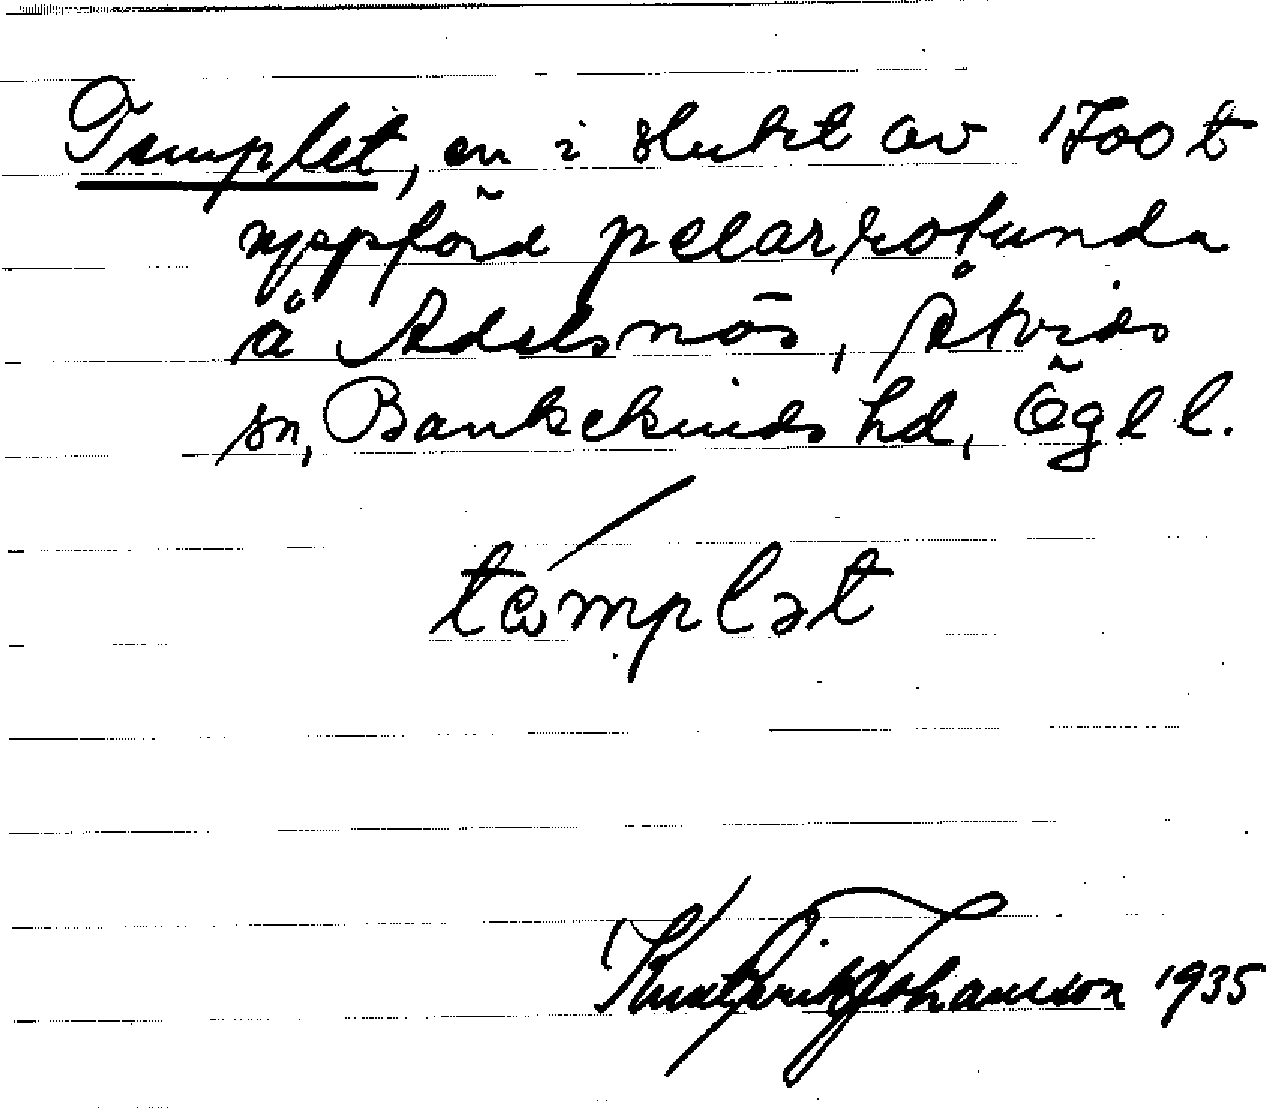 Templet, en i slutet av 1700 t
uppförd pelarrotunda
å Adelsnäs, Åtvids
sn, Bankekinds hd, Ögl l.
tämplət
Knut Erik Johansson 1935